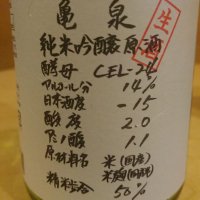 亀泉
純米吟醸原酒
生酒
酵母 CEL-24
アルコール分 14%
日本酒度 -15
酸度 2.0
アミノ酸 1.1
原材料名 米(国産)
米麹(国産米)
精米歩合 50%